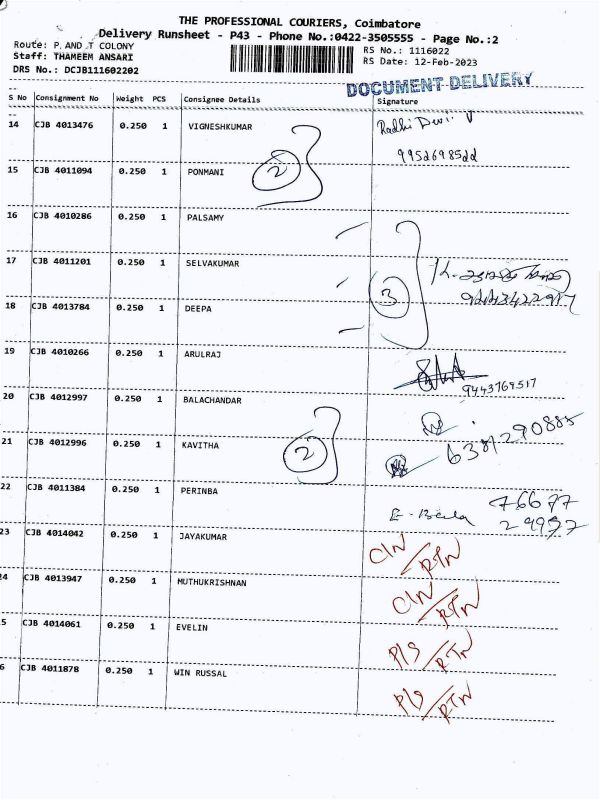 THE PROFESSIONAL COURIERS, Coimbatore
Delivery Runsheet - P43 - Phone No.:0422-3505555 - Page No.:2
Route: P AND T COLONY
RS No.: 1116022
Staff: THAMEEM ANSARI
RS Date: 12-Feb-2023
DRS No.: DCJB111602202
DOCUMENT DELIVERY
S No Consignment No Weight PCS Consignee Details Signature
14 CJB 4013476 0.250 1 VIGNESHKUMAR Radhi Devi V
2
15 CJB 4011094 0.250 1 PONMANI
16 CJB 4010286 0.250 1 PALSAMY
17 CJB 4011201 0.250 1 SELVAKUMAR
3
18 CJB 4013784 0.250 1 DEEPA
19 CJB 4010266 0.250 1 ARULRAJ
9443769517
20 CJB 4012997 0.250 1 BALACHANDAR
6381290885
21 CJB 4012996 0.250 1 KAVITHA
2
22 CJB 4011384 0.250 1 PERINBA
23 CJB 4014042 0.250 1 JAYAKUMAR CIN/RTN
24 CJB 4013947 0.250 1 MUTHUKRISHNAN CIN/RTN
5 CJB 4014061 0.250 1 EVELIN P/S/RTN
6 CJB 4011878 0.250 1 WIN RUSSAL P/S/RTN